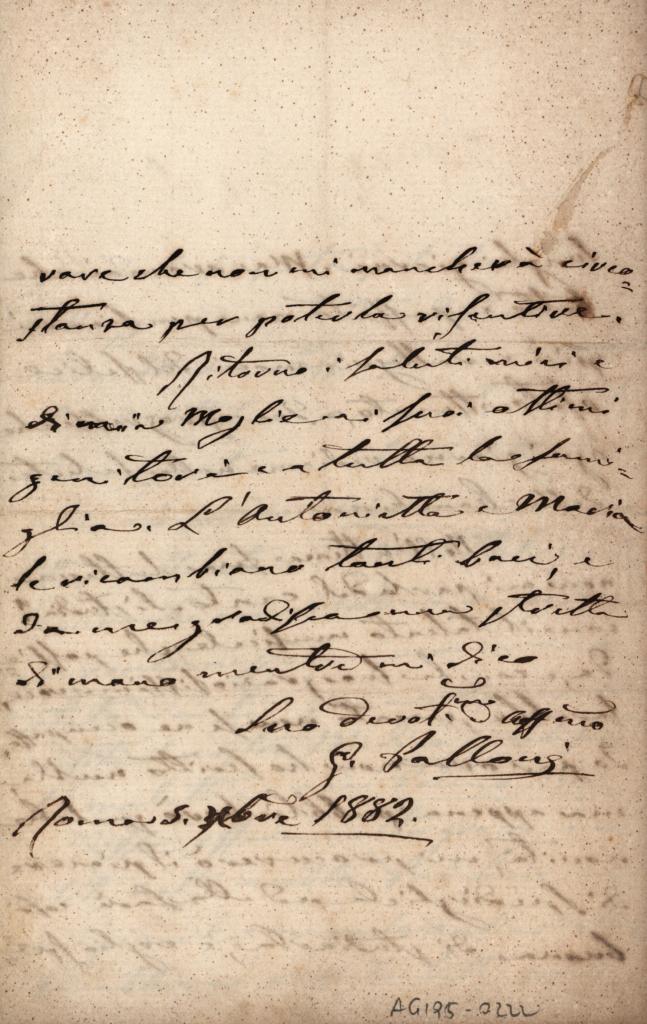 vare che non mi mancherà circo=
stanza per poterla risentire.
Ritorno i saluti miei e
di mia Moglie ai suoi ottimi
genitori e a tutta la fami-
glia. L'Antonietta e Maria
le ricambiano tanti baci, e
da me gradisca una stretta
di mano mentre mi dico
Suo devot.mo affmo
G.
Roma 5. Xbre 1882.
AG195-0222